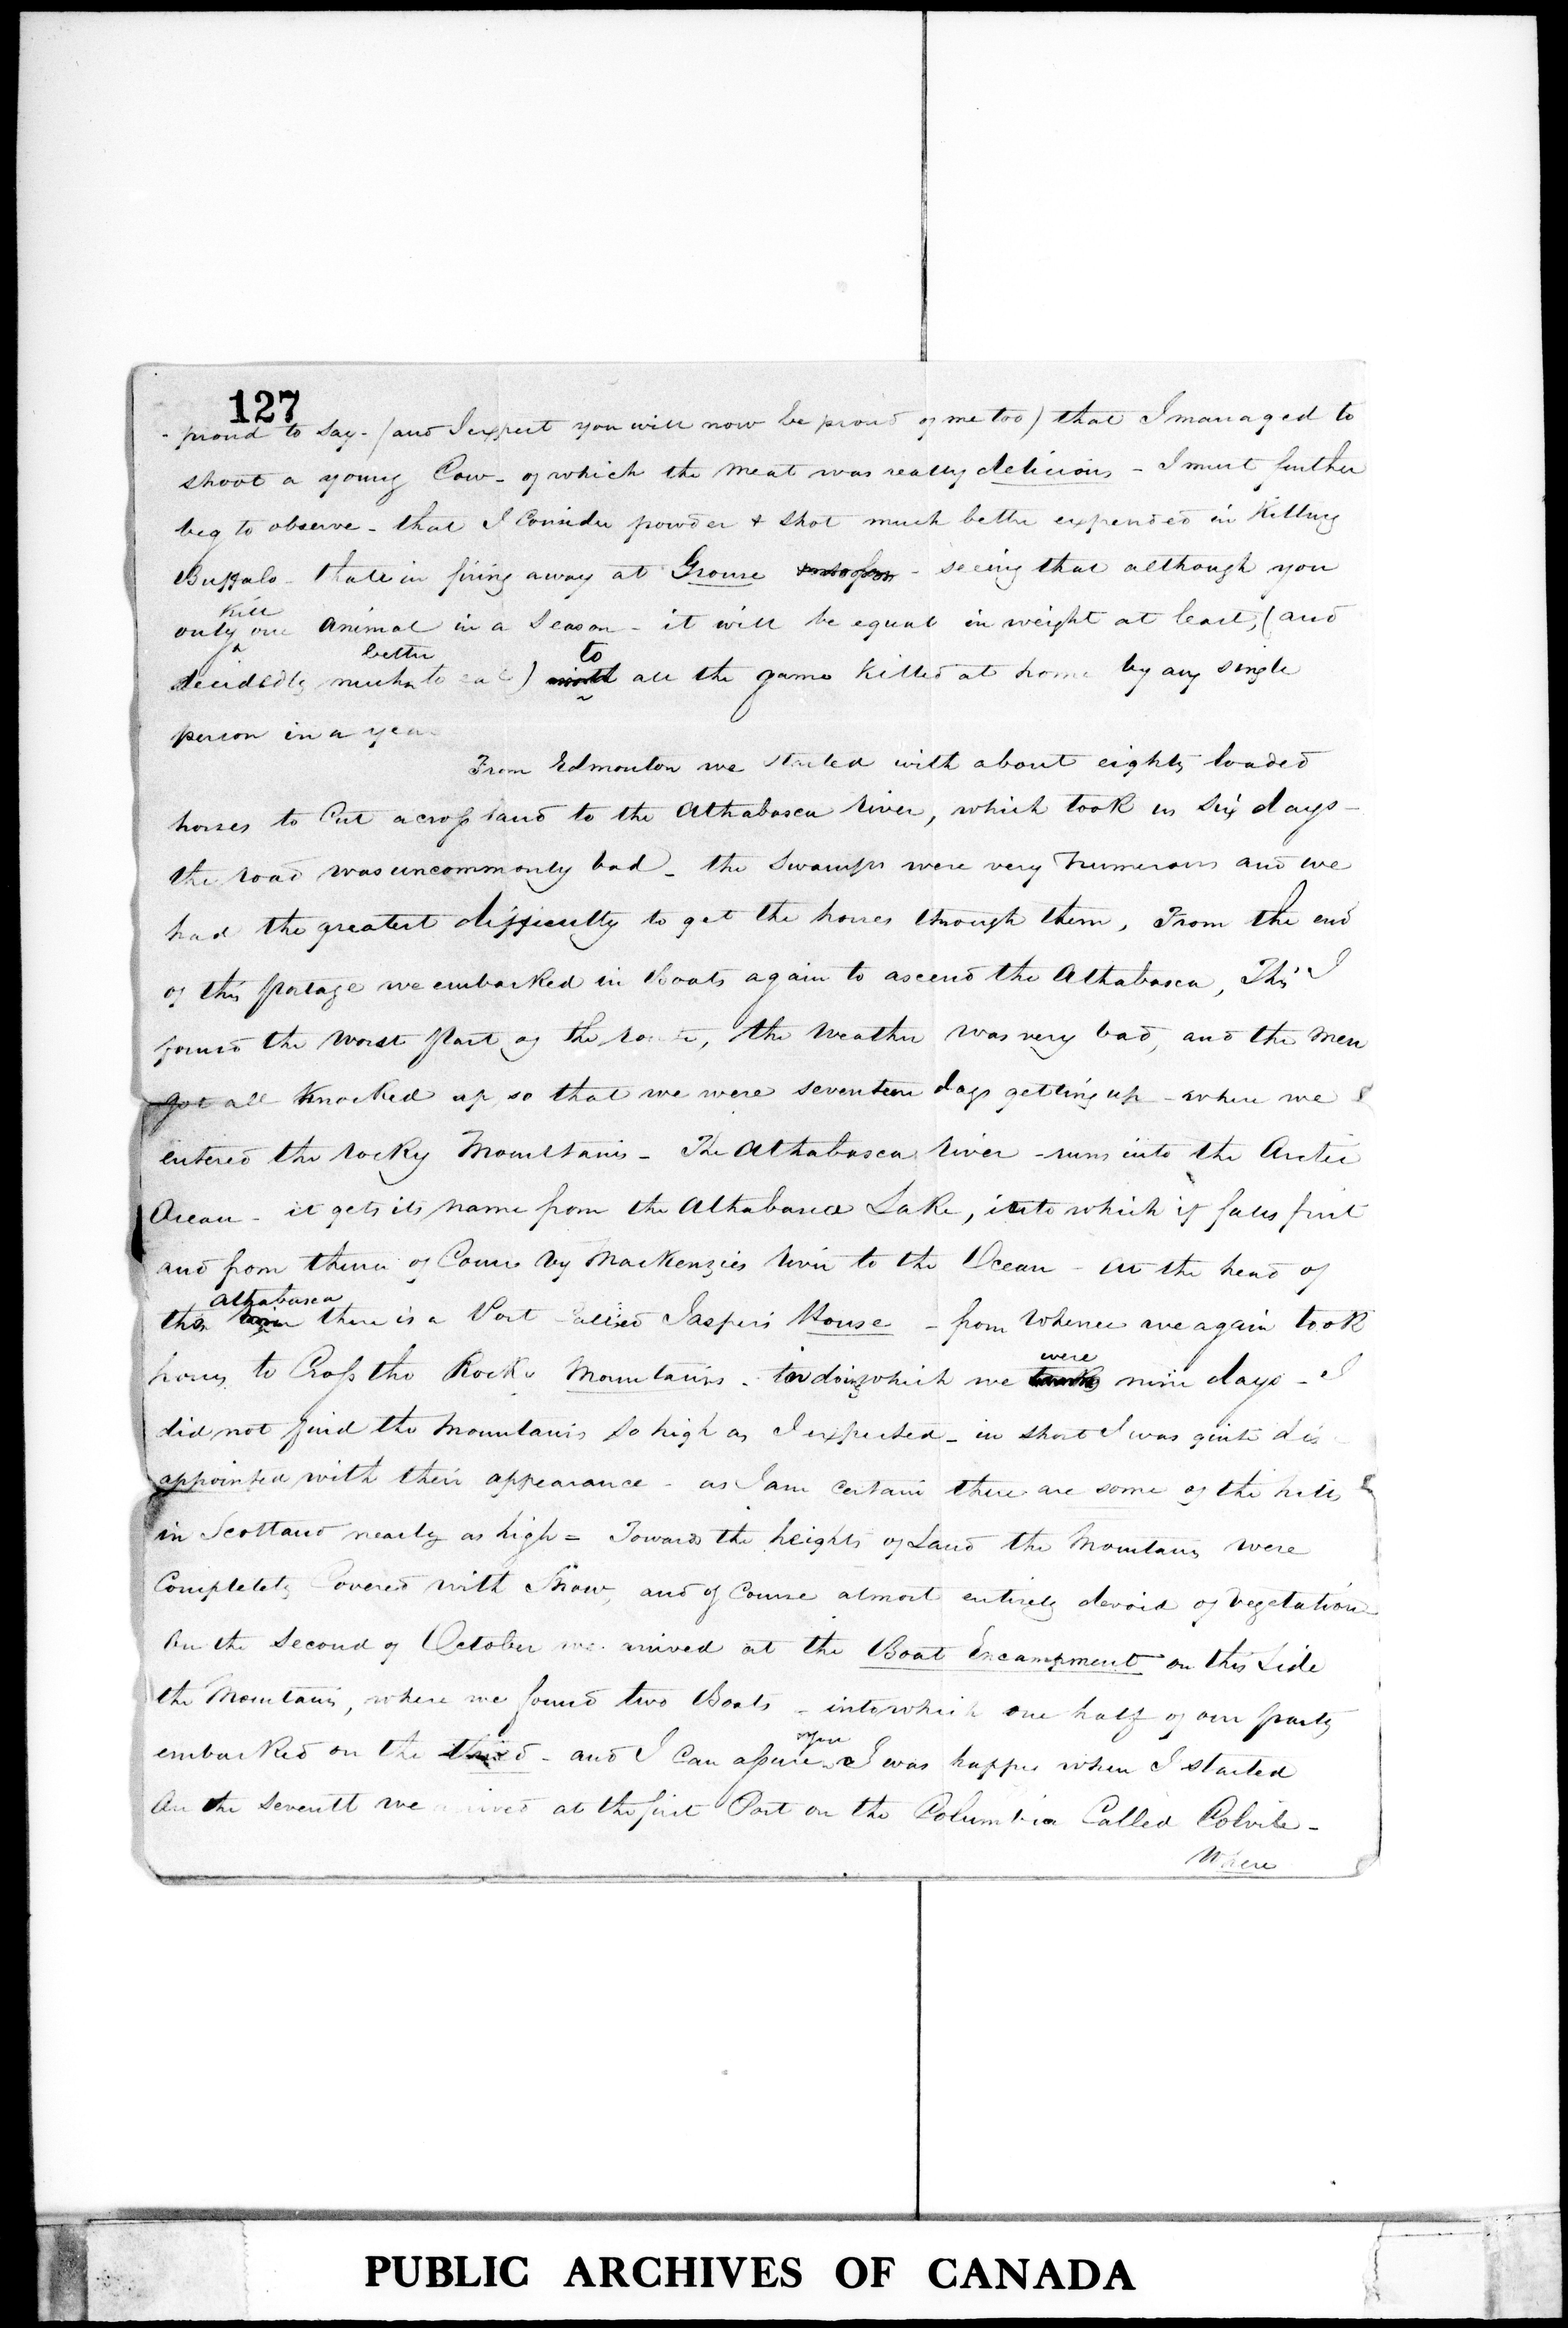 127
- proud to say - (and I expect you will now be proud of me too) that I managed to
shoot a young Cow - of which the meat was really delicious - I must further
beg to observe - that I Consider powder & shot much better expended in Killing
Buffalo - than in firing away at Grouse - seeing that although you
Kill
only one animal in a Season - it will be equal in weight at least, (and
better to
decidedly much to eat) all the game Killed at home by any single
person in a year
From Edmonton we started with about eighty loaded
horses to Cut across land to the Athabasca River, which took us Six days -
the road was uncommonly bad - the Swamps were very numerous and we
had the greatest difficulty to get the horses through them, From the end
of this portage we embarked in Boats again to ascend the Athabasca, This I
found the worst part of the route, the weather was very bad, and the men
got all Knocked up, so that we were seventeen days getting up - where we
entered the Rocky Mountains - The Athabasca River - runs into the Arctic
Ocean - it gets its name from the Athabasca Lake, into which it falls first
and from thence of Course by MacKenzies River to the Ocean - At the head of
Athabasca
the there is a Post Called Jaspers House - from whence we again took
horses to Cross the Rocky Mountains - in doing which we were nine days - I
did not find the Mountains so high as I expected - in short I was quite dis-
appointed with their appearance - as I am certain there are some of the hills
in Scotland nearly as high = Towards the heights of Land the Mountains were
Completely Covered with Snow, and of Course almost entirely devoid of Vegetation
On the Second of October we arrived at the Boat Encampment on this Side
the Mountains, where we found two Boats - into which one half of our party
you
embarked on the third - and I Can assure I was happy when I started
On the Seventh we arrived at the first Post on the Columbia Called Colvile -
Where
PUBLIC ARCHIVES OF CANADA